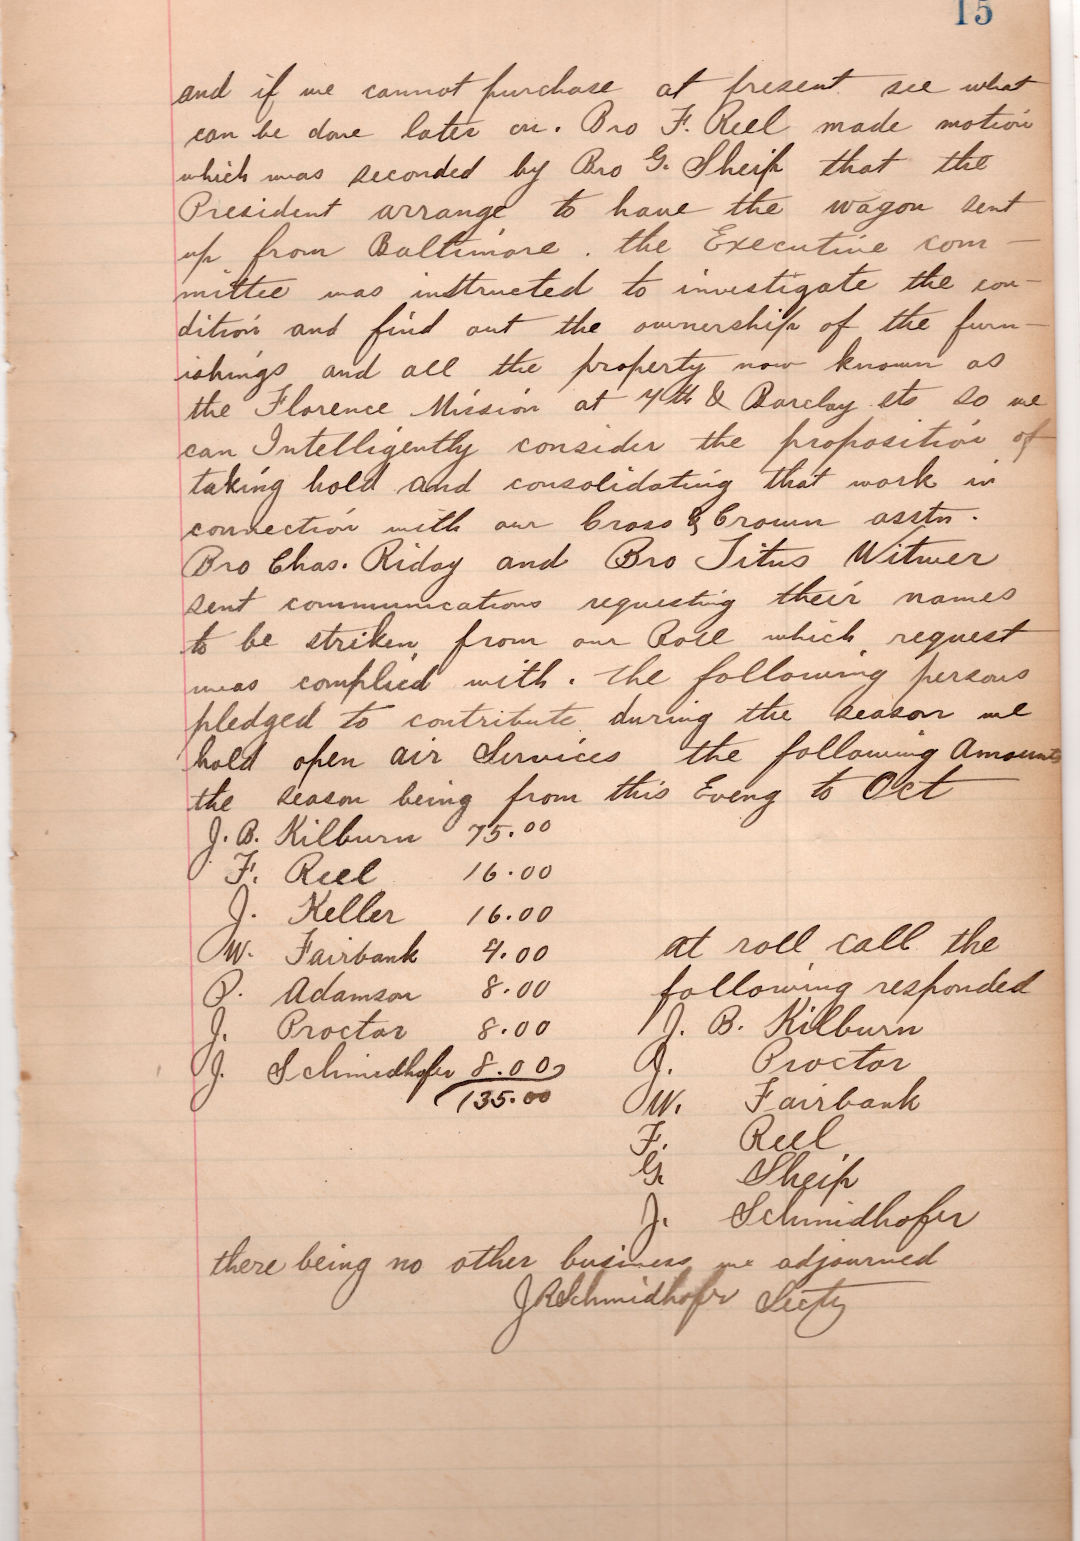 15
and if we cannot purchase at present see what
can be done later on. Bro F. Reel made motion
which was seconded by Bro G. Sheip that the
President arrange to have the wagon sent
up from Baltimore. the Executive com-
mittee was instructed to investigate the con-
dition and find out the ownership of the furn-
ishings and all the property now known as
the Florence Mission at 4th & Barclay sts so we
can Intelligently consider the proposition of
taking hold and consolidating that work in
connection with our Cross & Crown asstn.
Bro Chas. Riday and Bro Titus Witmer
sent communications requesting their names
to be striken from our Roll which request
was complied with. the following persons
pledged to contribute during the season we
hold open air Services the following Amounts
the season being from this Eveng to Oct
J. B. Kilburn 75.00
F. Reel 16.00
J. Keller 16.00
W. Fairbank 4.00
P. Adamson 8.00
J. Proctor 8.00
J. Schmidhofer 8.00
135.00
at roll call the
following responded
J. B. Kilburn
J. Proctor
W. Fairbank
F. Reel
G. Sheip
J. Schmidhofer
there being no other business we adjourned
J R Schmidhofer Secty